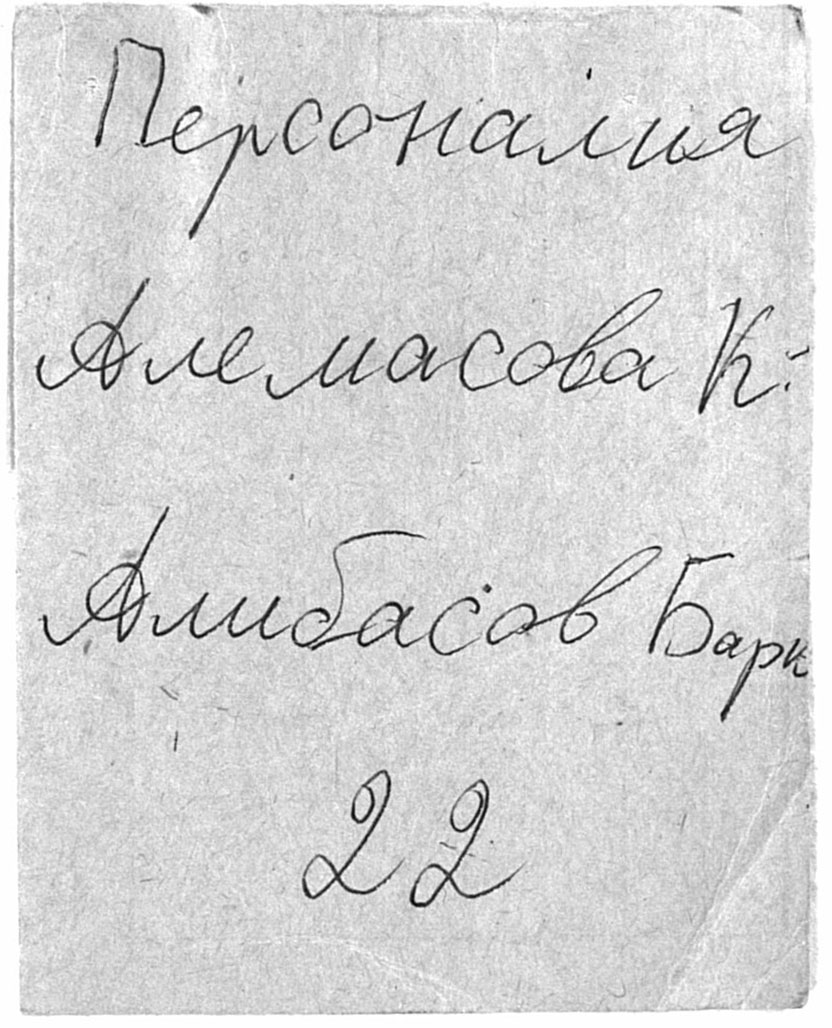 Персоналия
Алемасова К.
Алибасов Барк
22